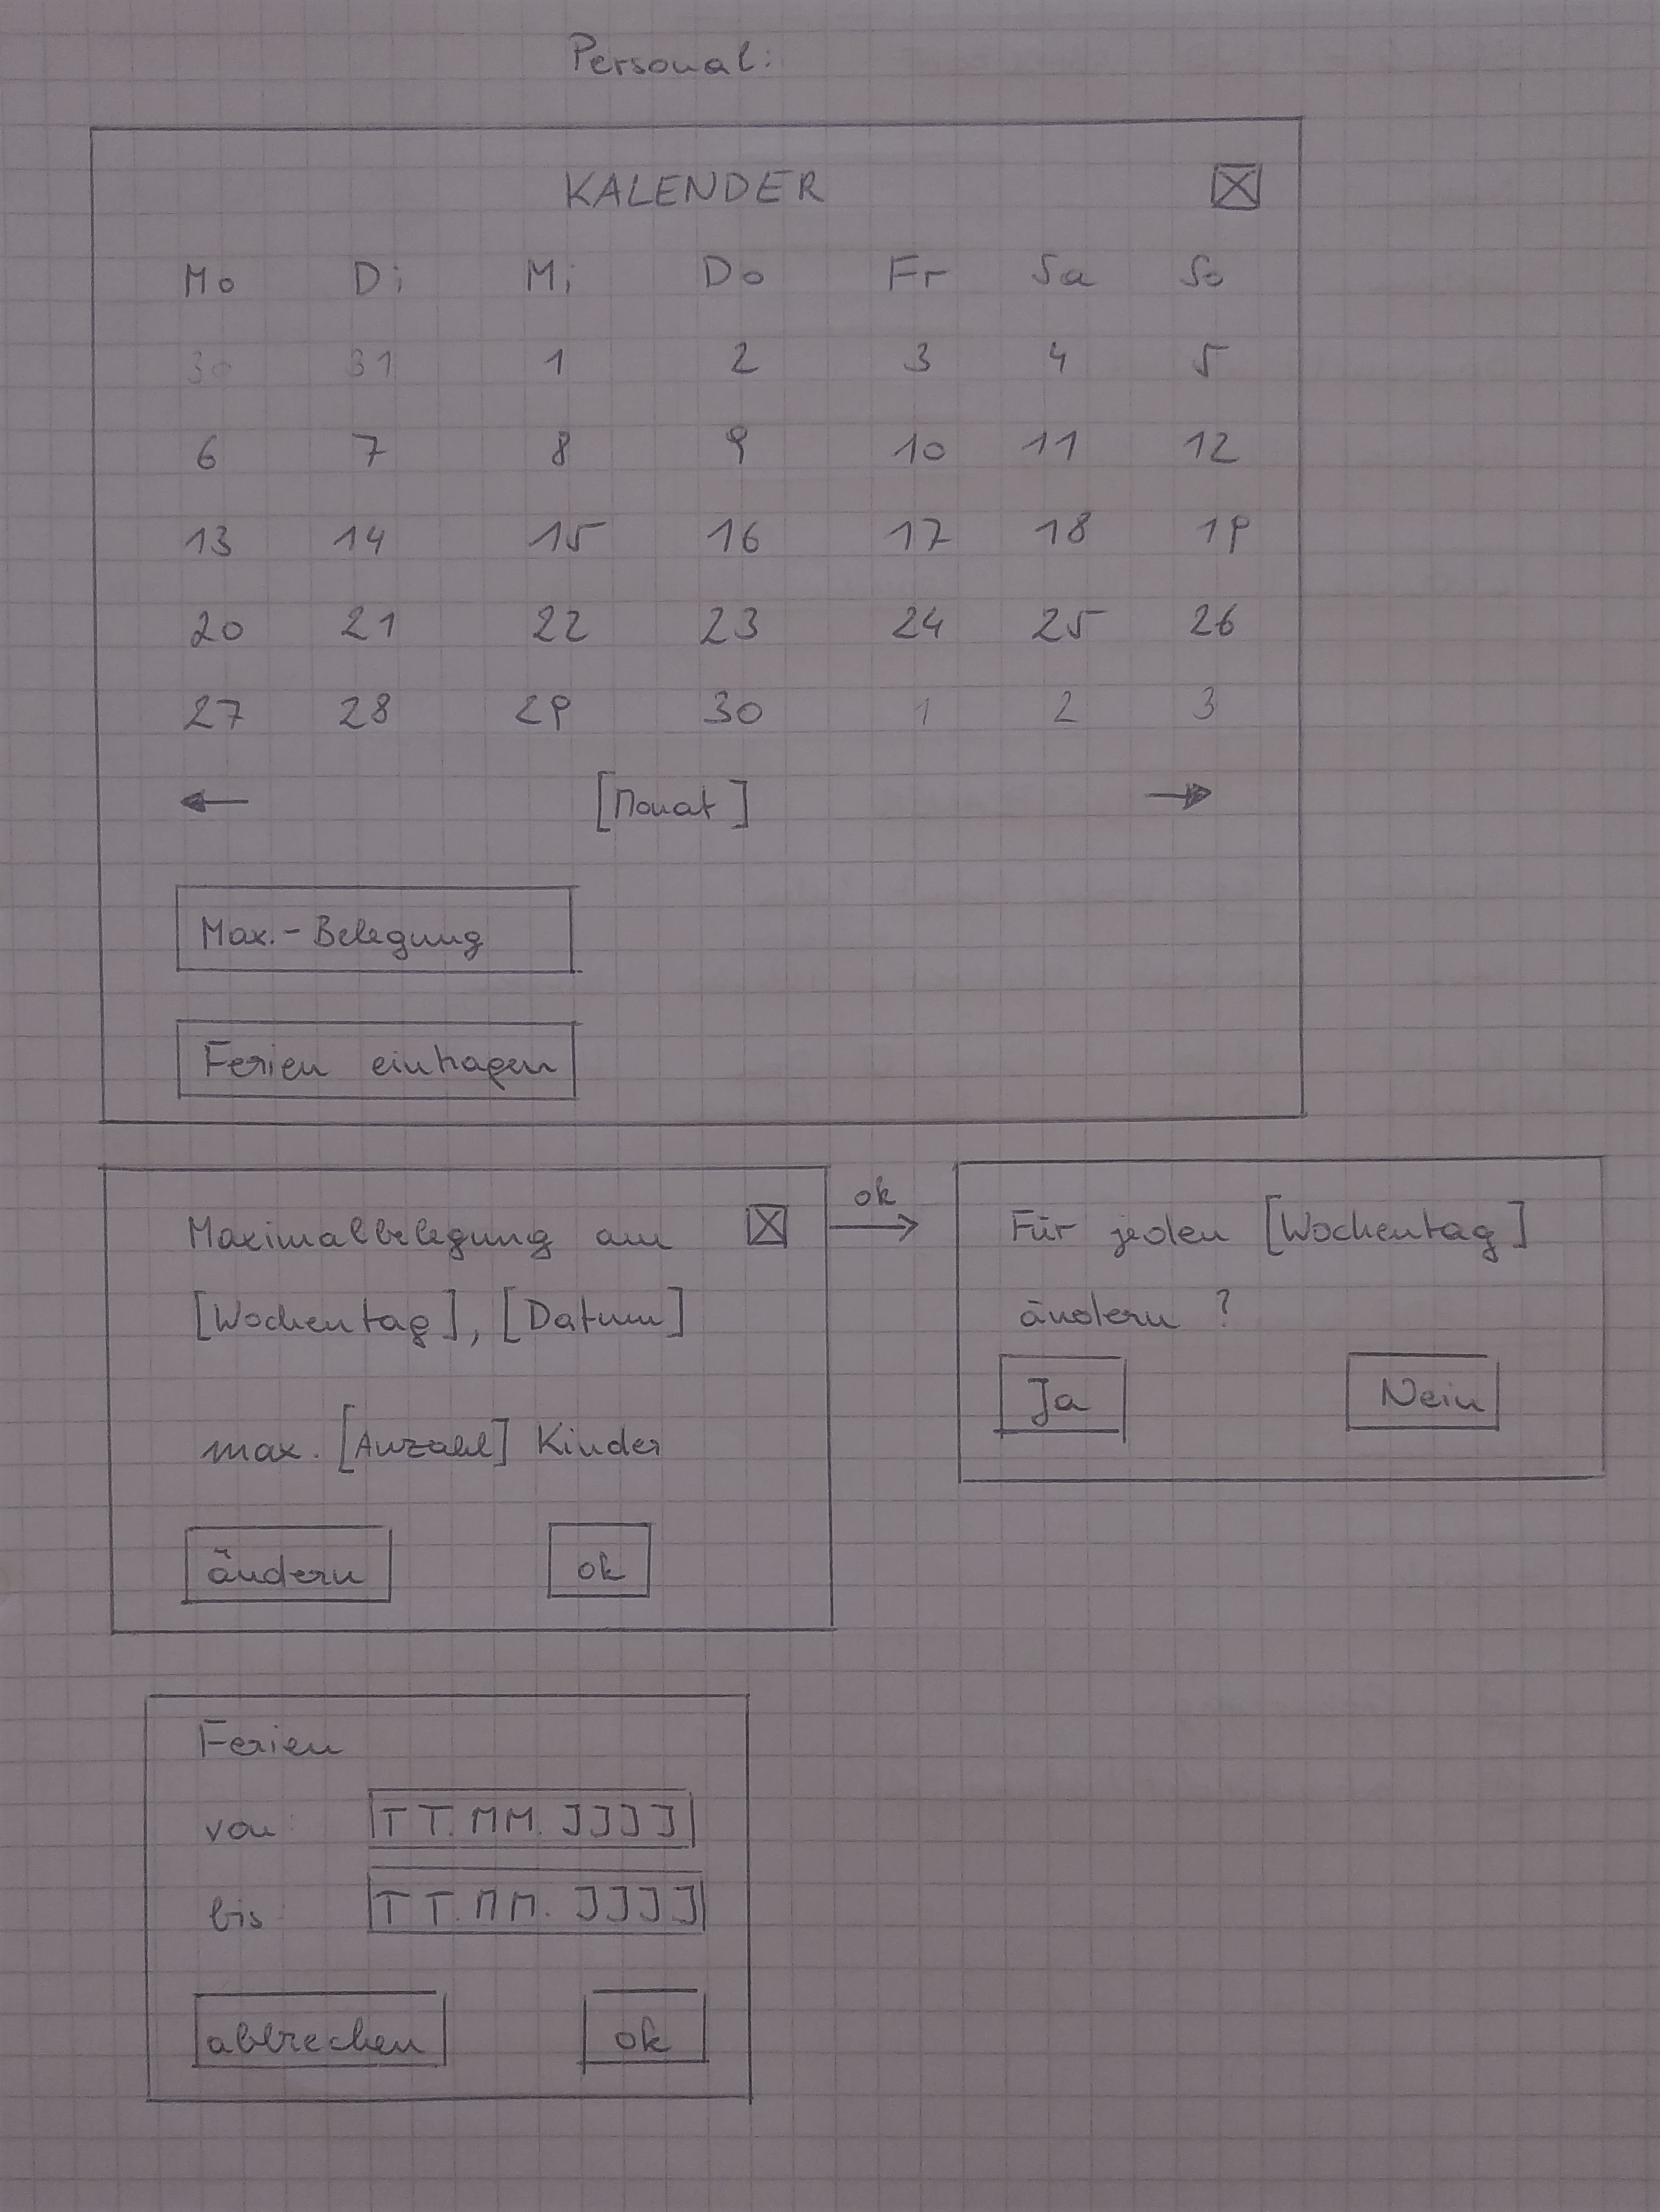 Personal:
KALENDER
Mo Di Mi Do Fr Sa So
30 31 1 2 3 4 5
6 7 8 9 10 11 12
13 14 15 16 17 18 19
20 21 22 23 24 25 26
27 28 29 30 1 2 3
← [Monat] →
Max.-Belegung
Ferien eintragen
Maximalbelegung am
[Wochentag], [Datum]
max. [Anzahl] Kinder
ändern ok
ok
Für jeden [Wochentag]
ändern ?
Ja Nein
Ferien
von: TT.MM.JJJJ
bis: TT.MM.JJJJ
abbrechen ok